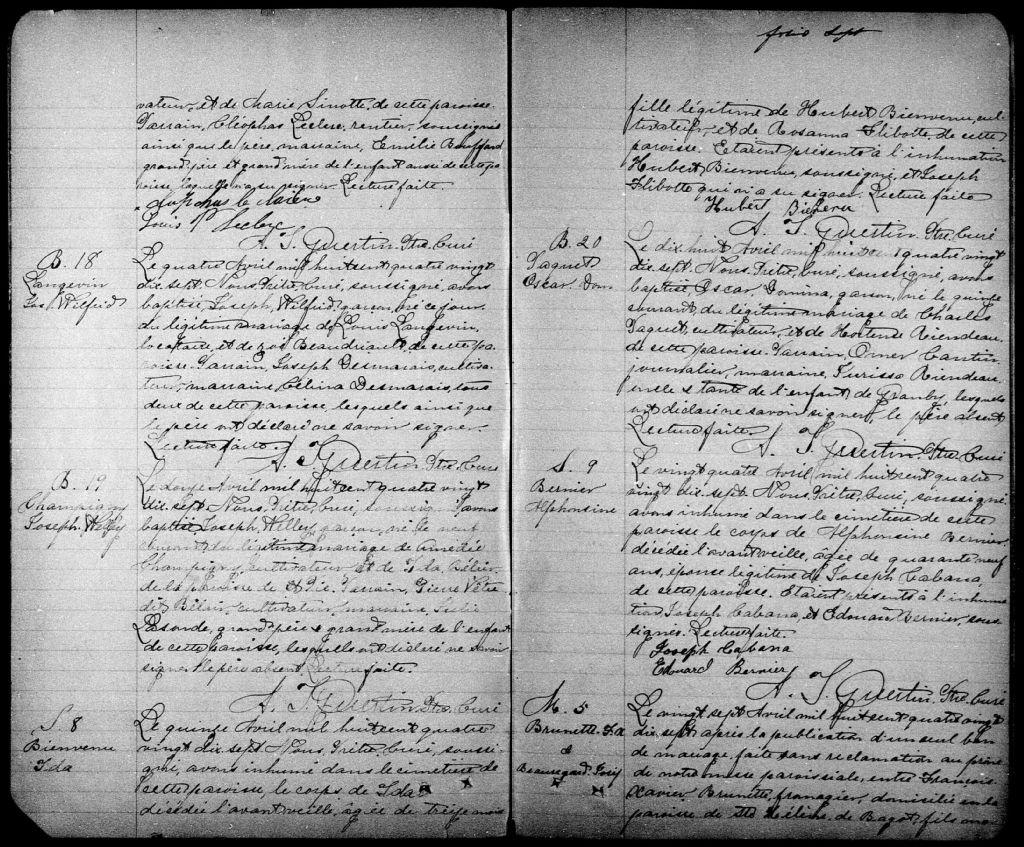 vateur, et de Marie Sinotte, de cette paroisse.
Parrain, Cléophas Leclerc, rentier, soussigné
ainsi que le père, marraine, Emilie Bouffard
grand-père et grand mère de l'enfant aussi de cette pa
roisse, laquelle n'a su signer. Lecture faite.
Louis P Leclerc
A. S. Guertin. Ptre. Curé
B. 18
Langevin
Jos. Wilfrid
Le quatre Avril mil huit cent quatre vingt
dix-sept, Nous, Prêtre, Curé, soussigné, avons
baptisé, Joseph, Wilfrid, garçon, né ce jour
du légitime mariage de Louis Langevin,
et de Zoé Beaudriault, de cette pa
roisse. Parrain, Joseph Desmarais, cultiva-
teur, marraine, Célina Desmarais, tous
deux de cette paroisse, lesquels ainsi que
le père ont déclaré ne savoir signer.
Lecture faite.
A. S. Guertin. Ptre. Curé
B. 19
Champigny
Joseph, Willey
Le douze Avril mil huit cent quatre vingt
dix-sept Nous, Prêtre, Curé, soussigné avons
baptisé, Joseph, Willey, garçon, né le neuf
courant du légitime mariage de Amédée
Champigny, cultivateur et de Ida Bélair
de la paroisse de St Pie. Parrain, Pierre
dit Bélair, cultivateur, marraine, Julie
Lasonde, grand père & grand mère de l'enfant
de cette paroisse, lesquels ont déclaré ne savoir
signer. le père absent. Lecture faite.
A. S. Guertin. Ptre. Curé
S. 8
Bienvenu
Ida
Le quinze Avril mil huit cent quatre
vingt dix-sept Nous, Prêtre, Curé, soussi-
gné, avons inhumé dans le cimetière de
cette paroisse, le corps de Ida
décédée l'avant veille, âgée de treize mois
folio sept
fille légitime de Hubert Bienvenu, cul-
tivateur, et de Rosanna Flibotte, de cette
paroisse. Etaient présents à l'inhumation
Hubert, Bienvenu, soussigné, et Joseph
Flibotte qui n'a su signer. Lecture faite
Hubert Bienvenu
A. S. Guertin. Ptre. Curé
B. 20
Paquet
Oscar. Dom.
Le dix huit Avril mil huit cent quatre vingt
dix-sept, Nous, Prêtre, Curé, soussigné, avons
baptisé Oscar, Domina, garson, né le quinze
courant, du légitime mariage de Charles
Paquet, cultivateur, et de Hortense Riendeau
de cette paroisse. Parrain, Omer Cantin
journalier, marraine, Riendeau,
oncle & tante de l'enfant de Granby, lesquels
ont déclaré ne savoir signer, le père absent
Lecture faite.
A. S. Guertin. Ptre. Curé
S. 9
Bernier
Alphonsine
Le vingt quatre Avril mil huit cent quatre
vingt dix-sept Nous, Prêtre, Curé, soussigné
avons inhumé dans le cimetière de cette
paroisse le corps de Alphonsine Bernier,
décédée l'avant veille, âgée de quarante neuf
ans, épouse légitime de Joseph Cabana
de cette paroisse. Etaient présents à l'inhuma
tion Joseph Cabana, et Edouard Bernier, sous-
signés. Lecture faite
Joseph Cabana
Edouard Bernier
A. S. Guertin. Ptre. Curé
M. 5
Brunette F.X
&
Beauregard
Le vingt sept Avril mil huit cent quatre vingt
dix-sept après la publication d'un seul ban
de mariage, faite sans reclamation au prône
de notre messe paroissiale, entre François
Xavier Brunette, fromagier, domicilié en la
paroisse de Ste Hélène, de Bagot, fils